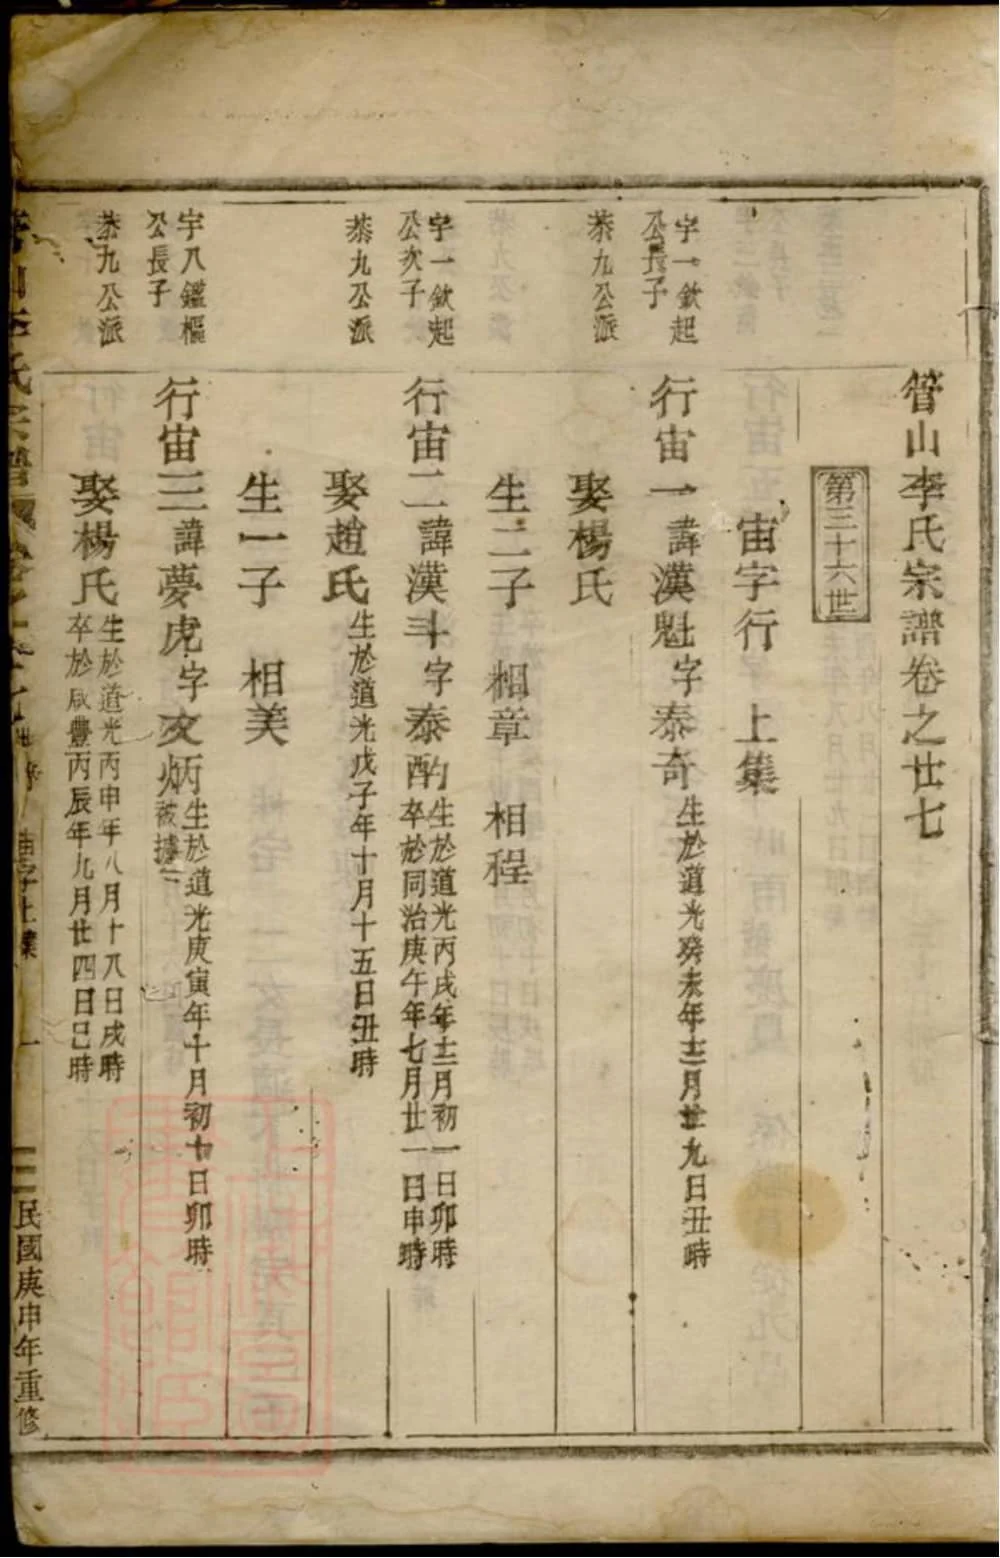 管山李氏宗譜卷之廿七
第三十六世
宙字行　上集
字一欽起
公長子
恭九公派
行宙一　諱漢魁　字泰奇　生於道光癸未年十二月廿九日丑時
娶楊氏
生二子　相章　相程
字一欽起
公次子
恭九公派
行宙二　諱漢斗　字泰酌　生於道光丙戌年十二月初一日卯時
卒於同治庚午年七月廿一日申時
娶趙氏　生於道光戊子年十月十五日丑時
生一子　相美
字八鑑樞
公長子
恭九公派
行宙三　諱夢虎　字文炳　生於道光庚寅年十月初十日卯時
被擄
娶楊氏　生於道光丙申年八月十八日戌時
卒於咸豐丙辰年九月廿四日巳時
管山李氏宗譜　卷之廿七　宙字上集　一　民國庚申年重修